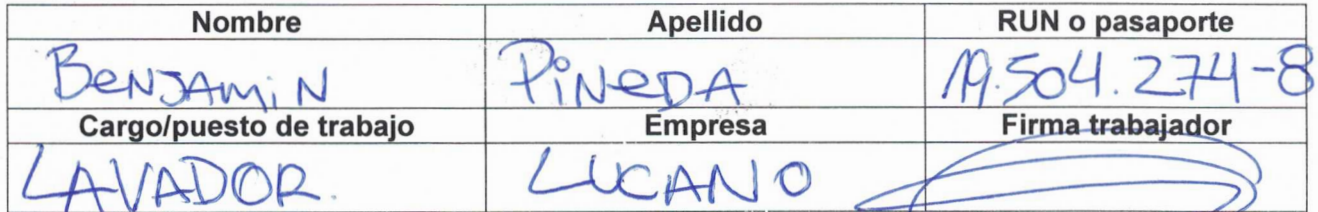 Nombre Apellido RUN o pasaporte
BENJAMIN PINEDA 19.504.274-8
Cargo/puesto de trabajo Empresa Firma trabajador
LAVADOR. LUCANO